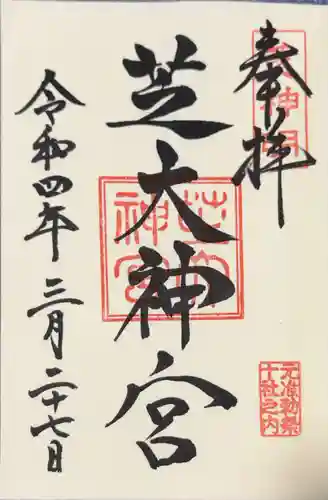 奉拝
芝大神宮
芝大
神宮
元准勅祭
十社之内
令和四年三月二十七日